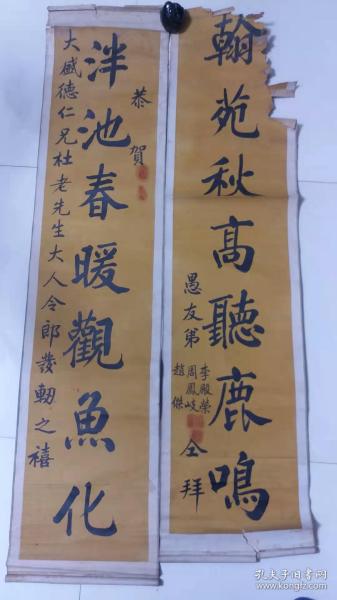 翰苑秋高聽鹿鳴
愚友弟
李殿榮
周鳳岐
趙傑
仝拜
恭賀
泮池春暖觀魚化
大盛德仁兄杜老先生大人令郎發軔之禧
孔夫子旧书网